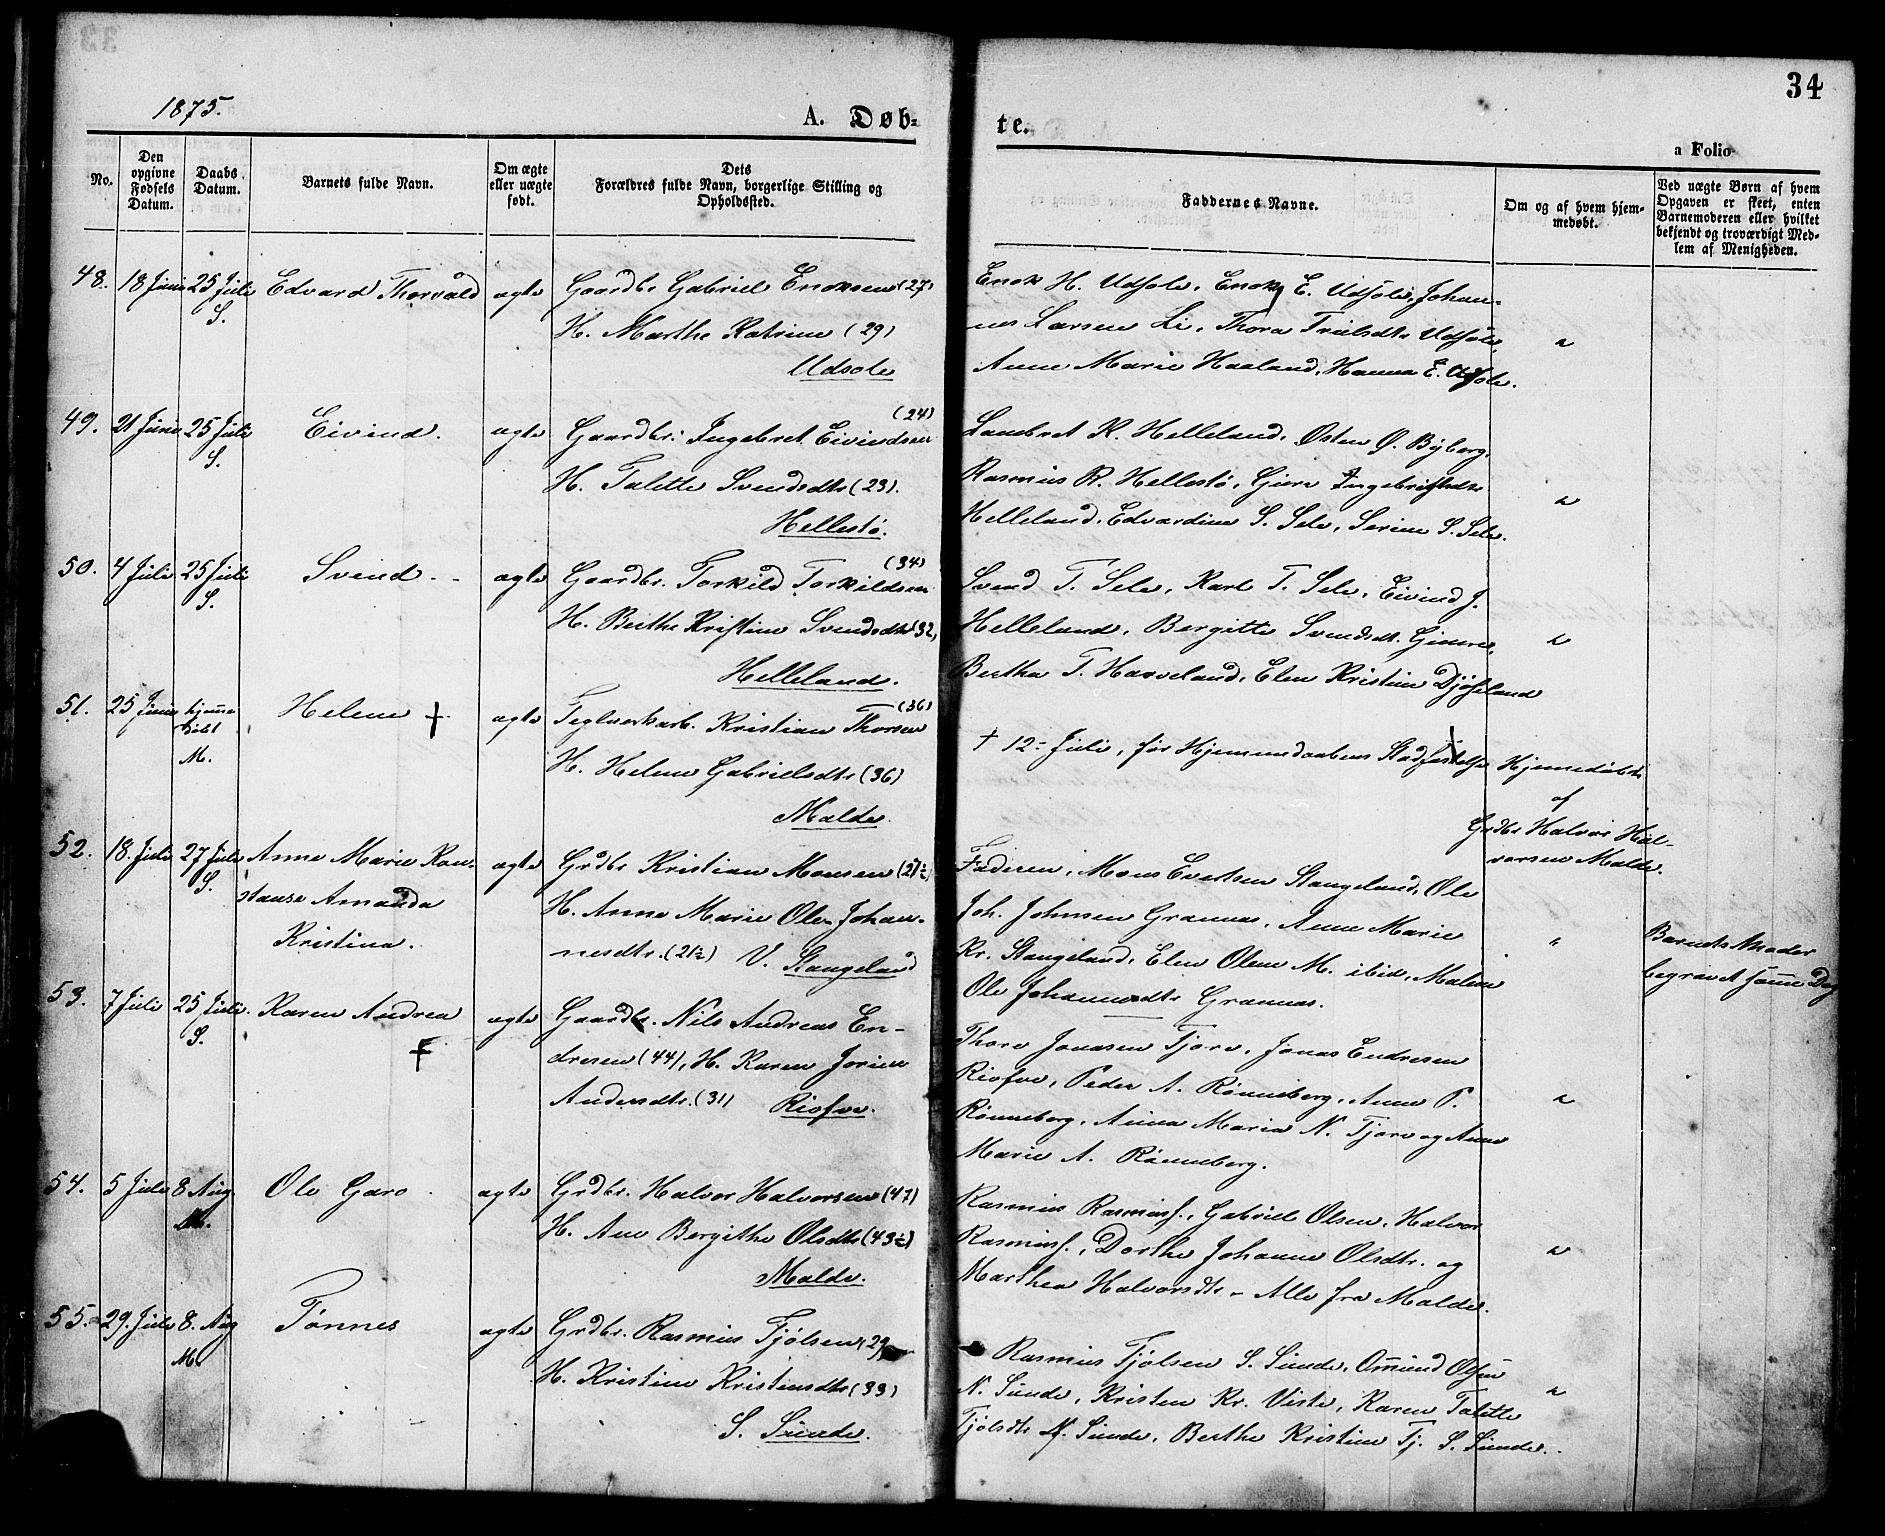 34
1875.
A. Døb-
te.
a Folio
No.
Den opgivne Fødsels Datum.
Daabs Datum.
Barnets fulde Navn.
Om ægte eller uægte født.
Dets Forældres fulde Navn, borgerlige Stilling og Opholdssted.
Faddernes Navne.
Om og af hvem hjemmedøbt.
Ved uægte Børn af hvem Opgaven er skeet, enten Barnemoderen eller hvilket bekjendt og troværdigt Medlem af Menigheden.
48. 18 Juni 25 Juli Edvard Thorvald ægte Gaardbr Gabriel Enoksen (27)
S. H. Marthe Katrine (29)
Udsole
Enok H. Udsole, Enok E. Udsole, Johan-
nes Larsen Li, Thora Udsole,
Anne Marie Haaland, Hanna E. Udsole.
49. 21 Juni 25 Juli Eivind. ægte Gaardbr. Ingebret Eivindsen (24)
S. H. Talette Svendsdtr (23).
Hellestø.
K. Helleland, Østen Ø. Byberg,
Rasmus R. Hellestø,
Helleland, Edvardine S. Sele, Serine S. Sele.
50. 4 Juli 25 Juli Svend. ægte Gaardbr. Torkild Torkildsen (34)
S. H. Berthe Kristine Svendsdtr (32)
Helleland.
Svend T. Sele, Karl T. Sele, Eivind J.
Helleland, Bergitte Svendsdt. Gimre,
Bertha T. Haveland, Elen Kristine Djøseland
51. 25 Juni hjemme døbt Helene † ægte Teglverksarb. Kristian Thorsen (36)
M. H. Helene Gabrielsdtr (36)
Malde.
† 12 Juli, før Hjemmedaabens Stadfæstelse
Hjemmedøbt
af
Grdbr Halvor Hal-
vorsen Malde.
52. 18. Juli 27 Juli Anne Marie Kon- ægte Grdbr Kristian Monsen (27½)
S. stanse Amanda H. Anne Marie Ole-Johan-
Kristina. nesdtr. (21½) V. Stangeland
Faderen, Mons Evertsen Stangeland, Ole
Joh. Johnsen Grannes, Anne Marie
Kr. Stangeland, Elen Olene M. ibid, Malene
Ole Johannesdtr Grannes.
"
Barnets Moder
begravet samme Dag
53. 7 Juli 25 Juli. Karen Andrea ægte Gaardbr. Nils Andreas En-
S. † dresen (44), H. Karen Jorine
Andersdtr. (31) Riofve.
Thore Jonassen Tjore, Jonas Endresen
Riofve, Peder A. Rønneberg, Anne P.
Rønneberg, Anna Maria N. Tjore og Anne
Marie A. Rønneberg.
54. 5 Juli 8 Aug Ole Garo ægte Grdbr. Halvor Halvorsen (47)
M. H. Ane Bergithe Olsdtr (43½)
Malde.
Rasmus Rasmuss., Gabriel Olsen, Halvor
Rasmuss., Dorthe Johanne Olsdtr. og
Marthea Halvorsdtr - Alle fra Malde.
55. 29. Juli 8. Aug Tønnes ægte Grdbr. Rasmus Tjølsen (29
M. H. Kristine Kristensdtr (33)
S. Sunde.
Rasmus Tjølsen S. Sunde, Omund Olsen
N. Sunde, Kristen Kr. Viste, Karen Talette
Tjølsdtr N. Sunde, Berthe Kristine Tj. S. Sunde.